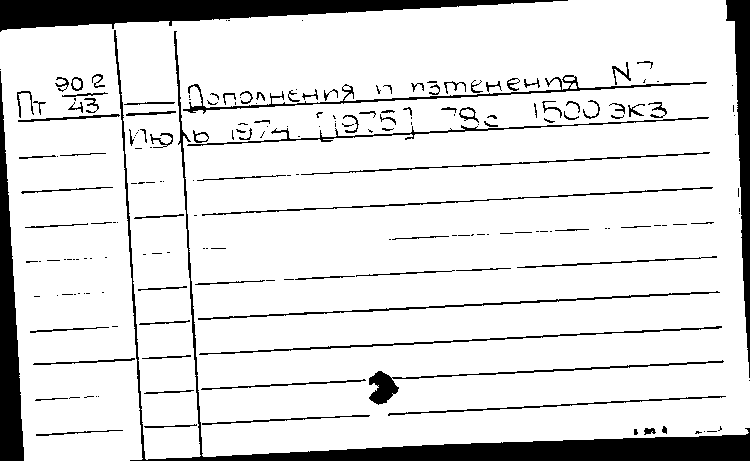 Пт 902/43 — Дополнения и изменения N 7.
Июль 1974. [1975] 78с 1500 экз